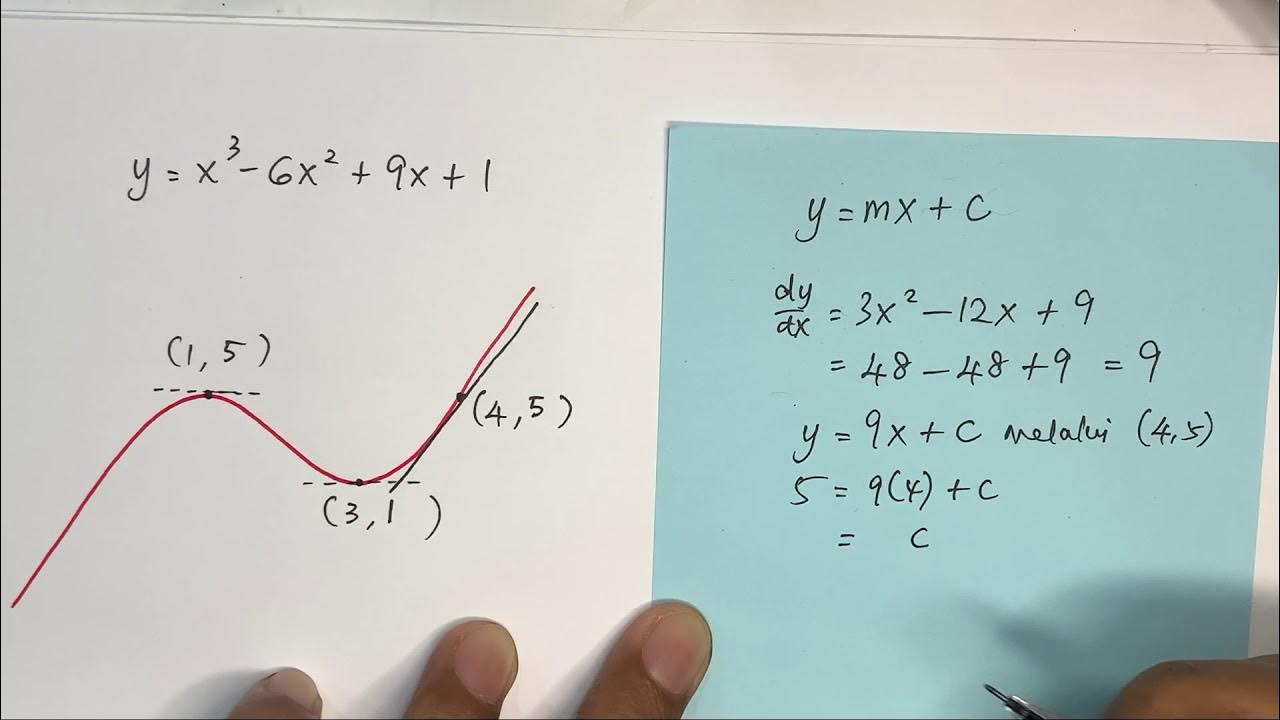 y = x³ - 6x² + 9x + 1
(1, 5)
(4, 5)
(3, 1)
y = mx + c
dy/dx = 3x² - 12x + 9
= 48 - 48 + 9 = 9
y = 9x + c melalui (4,5)
5 = 9(4) + c
= c